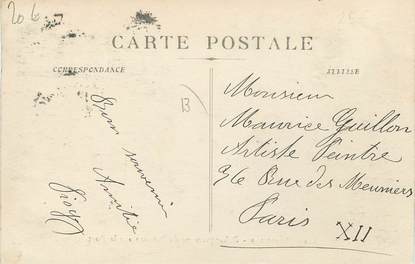 206
CARTE POSTALE
CORRESPONDANCE
ADRESSE
B
Bon souvenir
Amitié
Monsieur
Maurice Guillon
Artiste Peintre
36 Rue des Meuniers
Paris
XII